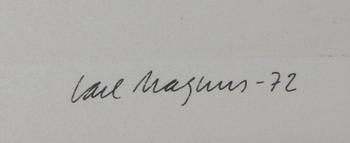 Carl Magnus -72